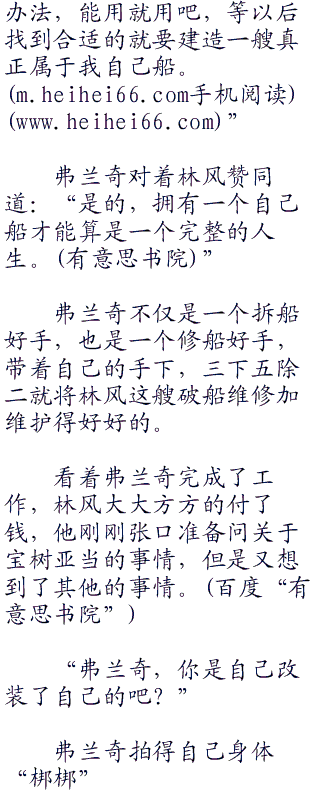 办法，能用就用吧，等以后
找到合适的就要建造一艘真
正属于我自己船。
(m.heihei66.com手机阅读)
(www.heihei66.com)”
弗兰奇对着林风赞同
道：“是的，拥有一个自己
船才能算是一个完整的人
生。(有意思书院)”
弗兰奇不仅是一个拆船
好手，也是一个修船好手，
带着自己的手下，三下五除
二就将林风这艘破船维修加
维护得好好的。
看着弗兰奇完成了工
作，林风大大方方的付了
钱，他刚刚张口准备问关于
宝树亚当的事情，但是又想
到了其他的事情。(百度“有
意思书院”)
“弗兰奇，你是自己改
装了自己的吧？”
弗兰奇拍得自己身体
“梆梆”